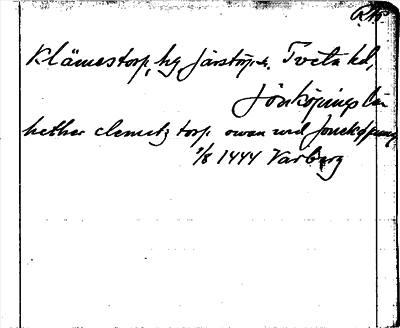 R.A.
Klämestorp, hg Järstorp s. Tveta hd,
Jönköpings län
hether clemetz torp owan wid Jonekøpung
1/8 1444 Varberg